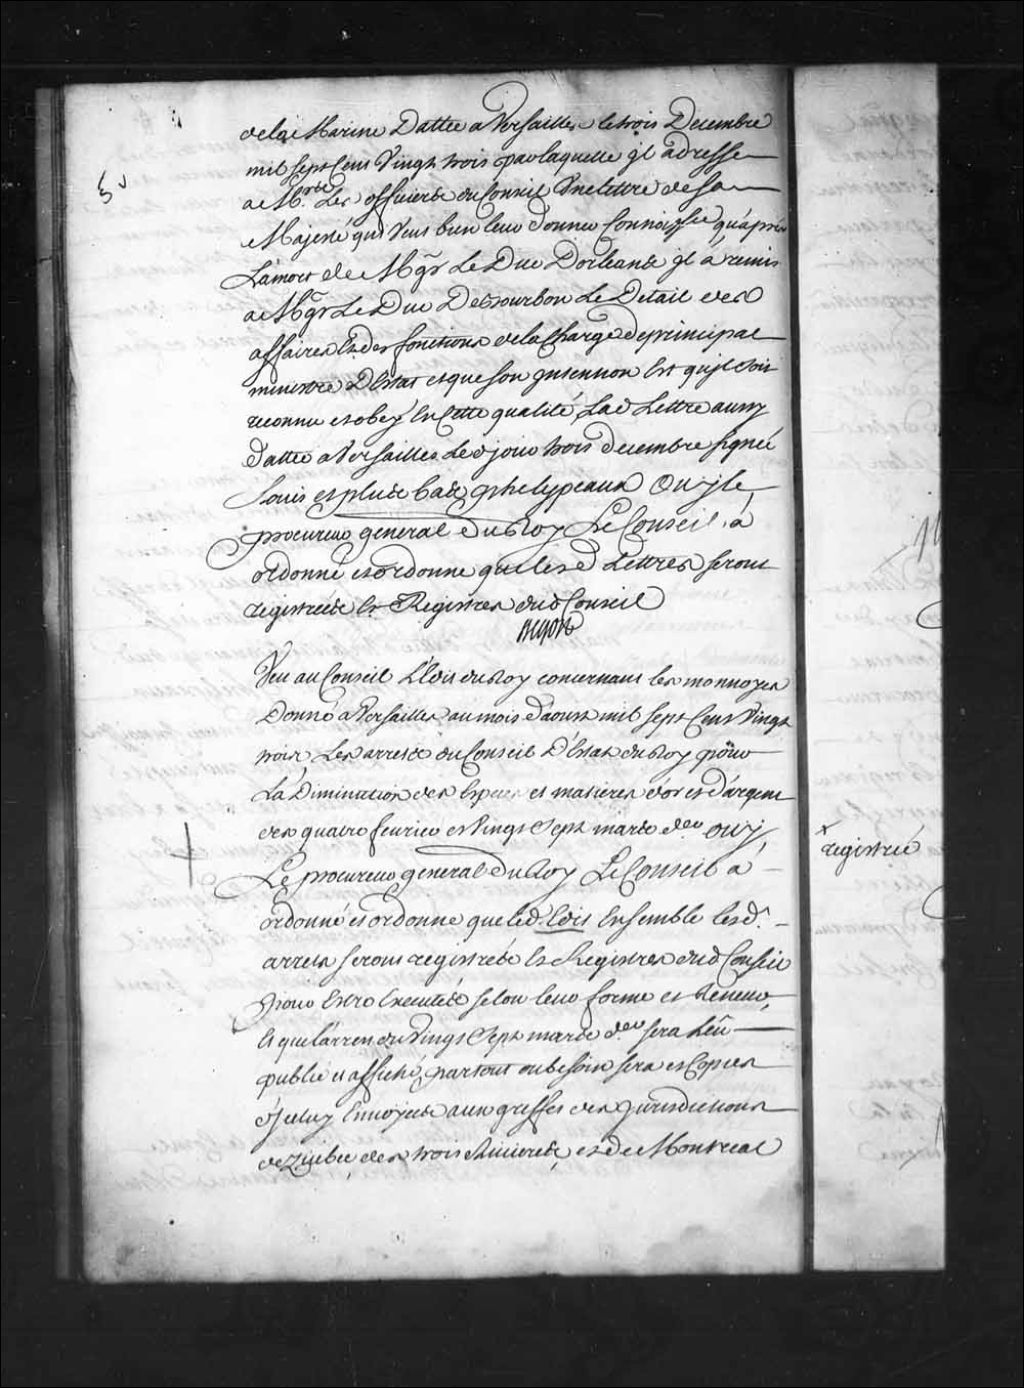 dela Marine Dattée a Versailles le trois Decembre
mil sept Cens Vingt trois par laquelle jl adresse
a Mrs. Les officiers du Conseil Une lettre de Sa
Majesté qui Veut bien leur donner Connoissce qu'aprés
La mort de Mgr Le Duc Dorleans jl a remis
a Mgr Le Duc De Bourbon Le Detail des
affaires Et des fonctions de la Charge de principal
ministre D'Estat et que son jntention Est qu'jl soit
reconnu et obey En Cette qualité, Lad Lettre aussy
dattée a Versailles Led jour trois decembre signée
Louis et plus bas phelypeaux Ouy le
procureur general du Roy Le Conseil a
ordonné et ordonne que lesd Lettres seront
registrées Es Registres dud Conseil
Begon
Veu au Conseil L'Edit du Roy concernant les monnoyes
Donné a Versailles au mois d'aoust mil sept Cens Vingt
trois, Les arrests du Conseil D'Estat du Roy pour
La Diminution des Especes et matieres d'or et d'argent
des quatre fevrier et Vingt Sept mars der. Ouy
Le procureur general du Roy Le Conseil a
ordonné et ordonne que led. Edit Ensemble lesd.
arrests seront registrés Es Registres dud Conseil
pour Estre Executés selon leur forme et teneur,
Et que l'arrest du Vingt Sept mars der sera Leü
publié et affiché partout ou besoin sera et Copies
d'jceluy Envoyées aux greffes des Jurisdictions
de Quebec, des trois Rivieres, et de Montreal
x
registrée